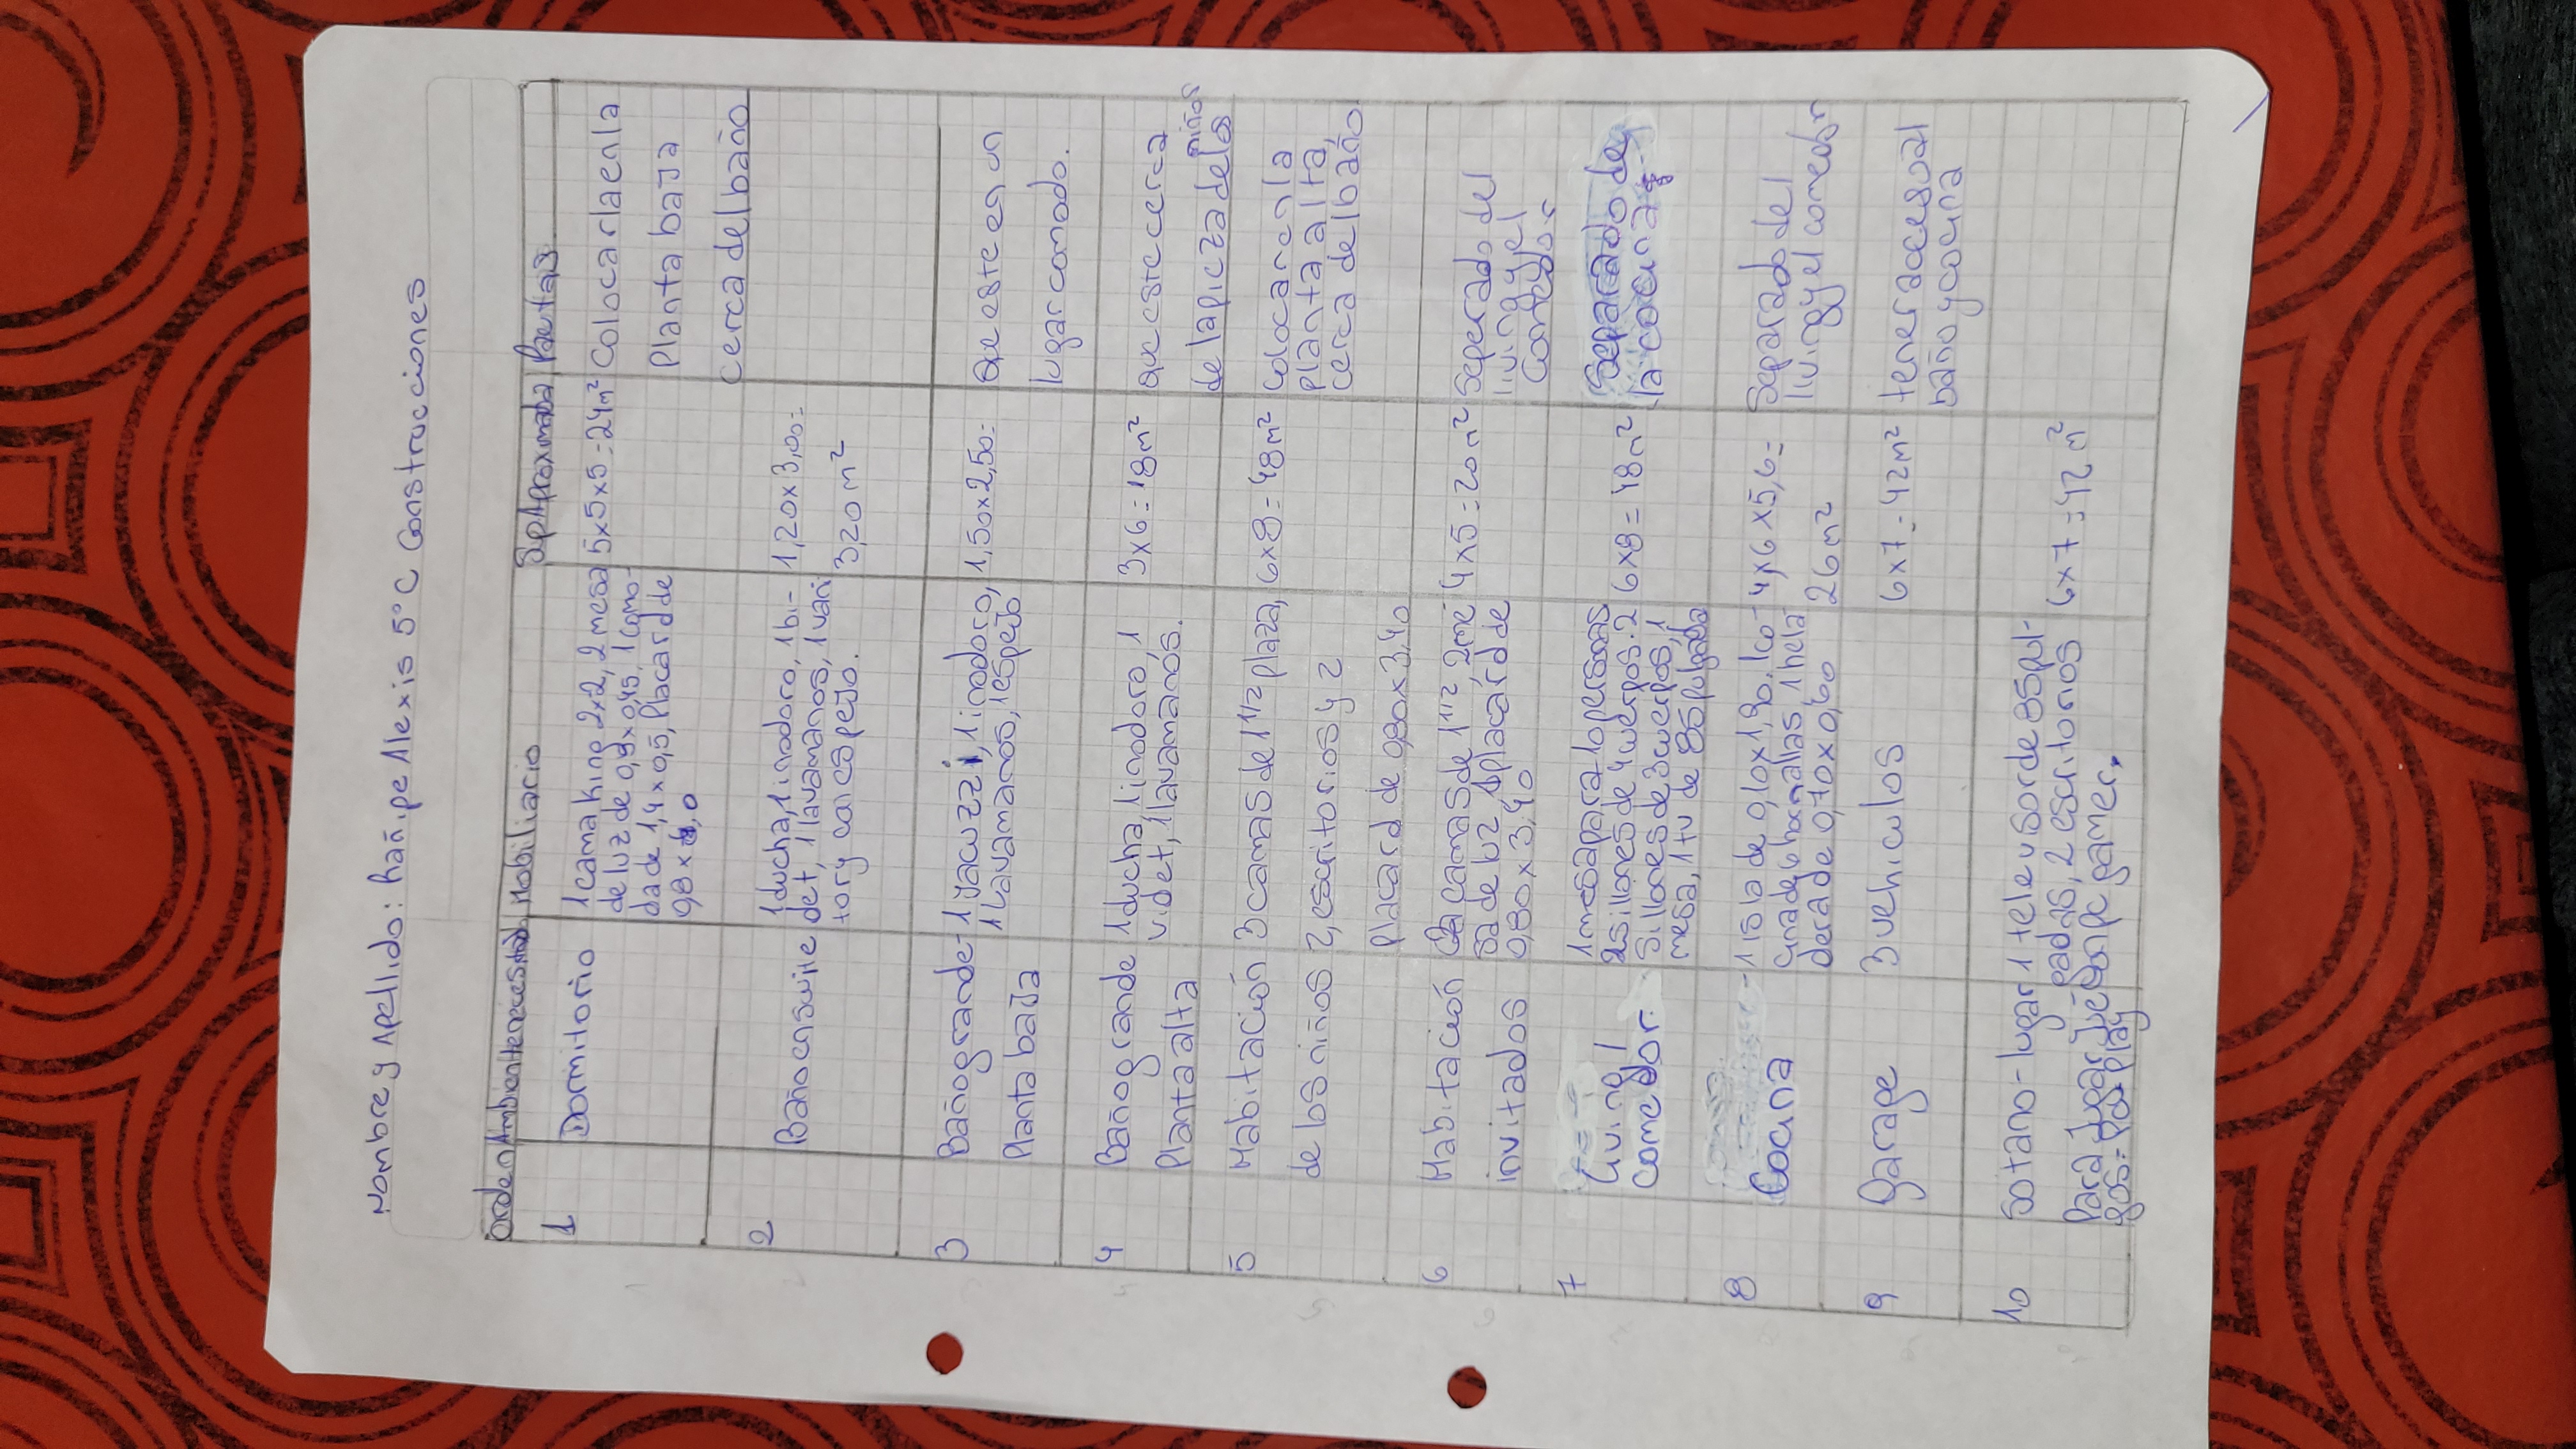 Nombre y Apellido: Rañipe Alexis 5°C Construcciones
Orden Ambientenecesitado Mobiliario Sp Aproximada Pautas
1 Dormitorio 1 cama king 2x2, 2 mesa 5x5x5=24m² Colocarlaenla
de luz de 0,9x0,45, 1 como- Planta baja
da de 1,4x0,5, Placard de cerca del baño
0,8x ,0
2 Baño ensuite 1 ducha, 1 inodoro, 1 bi- 1,20x3,00=
det, 1 lavamanos, 1 vani 3,20m²
tory con espejo.
3 Baño grande- 1 yacuzzi, 1 inodoro, 1,50x2,50= Que este en un
Planta baja 1 lavamanos, 1 espejo lugar comodo.
4 Baño grande 1 ducha, 1 inodoro, 1 3x6=18m² que este cerca
Planta alta videt, 1 lavamanós. de la piezadelos niños
5 Habitación 3 camas de 1 1/2 plaza, 6x8=48m² Colocarenla
de los niños 2, escritorios y 2 planta alta,
placard de 0,80x3,40 cerca del baño
6 Habitación camas de 1 1/2, 2 me 4x5=20m² Seperado del
invitados sa de luz 1 placárd de living y el
0,80x3,40 Comedor
7 Living/ 1 mesa para 10 personas 6x8=48m² Separado de
comedor. 2 sillones de 4 cuerpos. 2 la cocina
sillones de 3 cuerpos, 1
mesa, 1 tv de 85 pulgada
8 Cocina 1 isla de 0,10x1,90. 1 co- 4x6x5,6= Separado del
cina de 6 hornallas 1 hela 26m² living y el comedor
dera de 0,70x0,60
9 Garage 3 vehiculos 6x7=42m² tener acesoal
baño y cocina
10 Sotano-lugar 1 televisor de 85 pul- 6x7=42m²
Para Jugar Jue- gadas, 2 escritorios
gos- play con pc gamer.